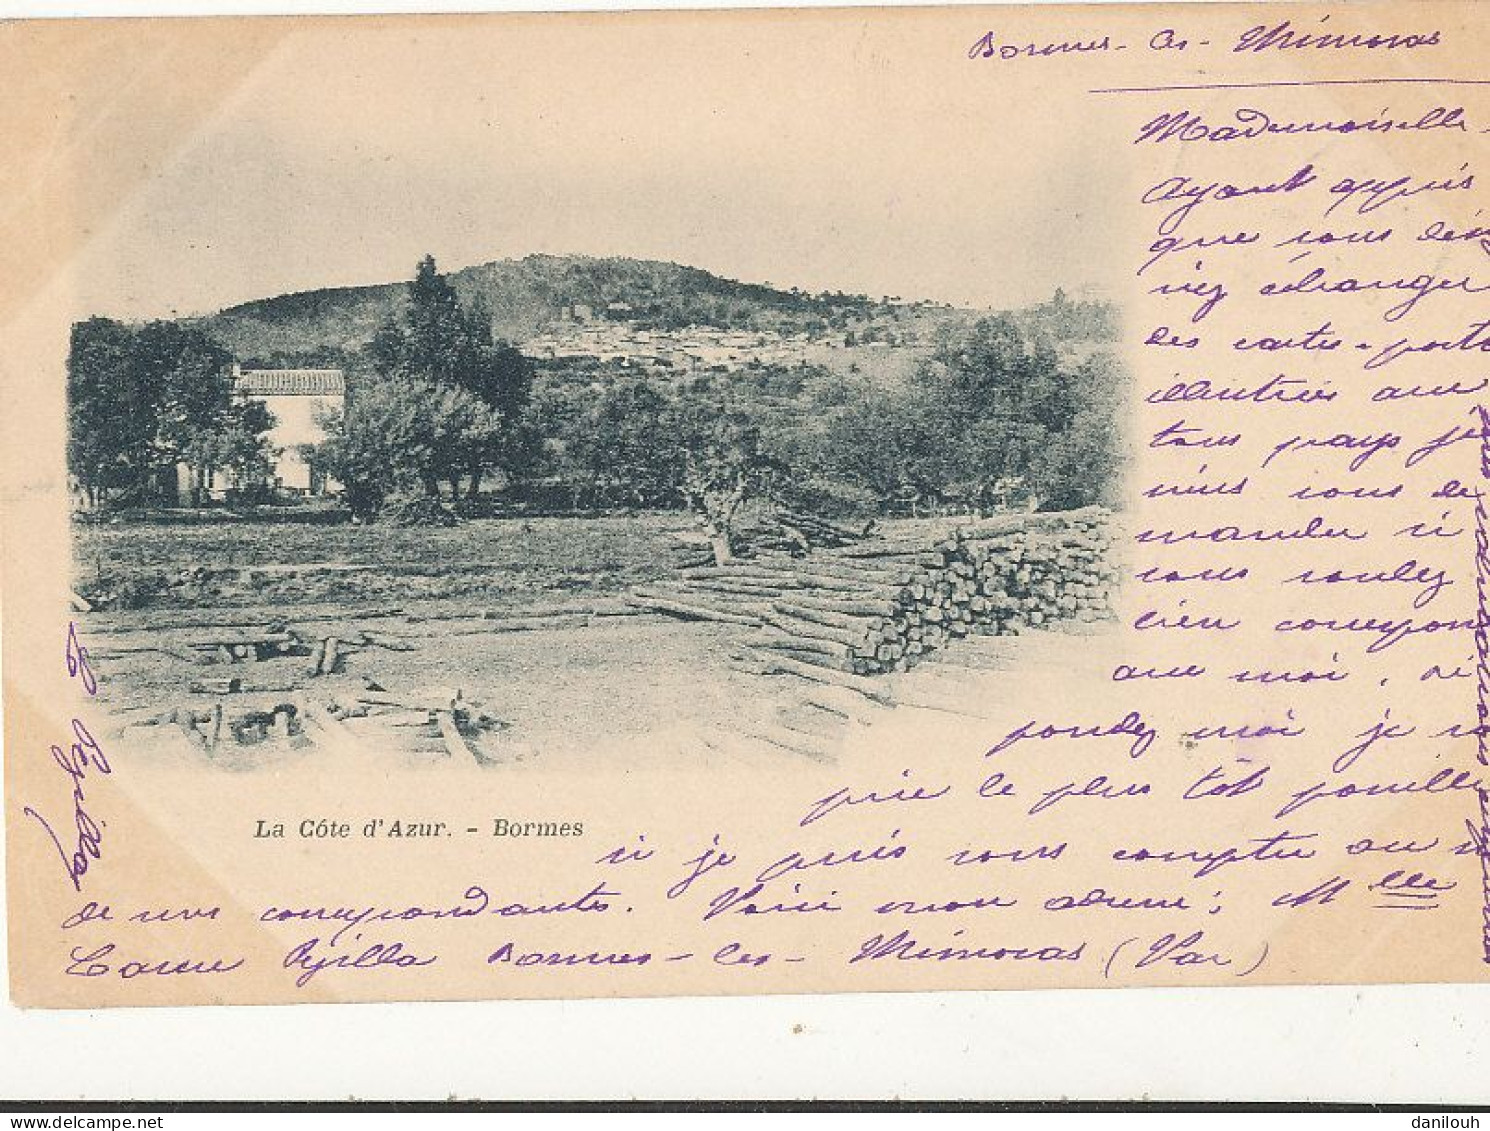 Bormes-les-Mimosas
Mademoiselle
Ayant appris
que vous dési
riez échanger
des cartes-posta
illustrées avec
tous pays je
viens vous de
mander si
vous voulez
bien correspon
avec moi, ré
pondez moi je v
prie le plus tôt possible
si je puis vous compter au n
de mes correspondantes. Voici mon adresse: Mlle
Pzilla Bormes-les-Mimosas (Var)
La Côte d'Azur. - Bormes
danilouh